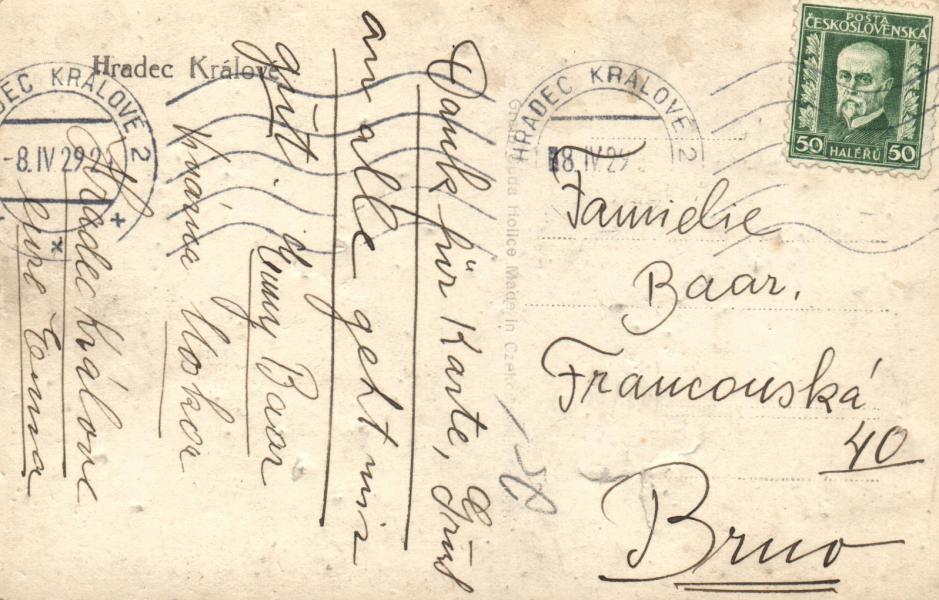 Hradec Králové
HRADEC KRÁLOVÉ 2
-8.IV 29
HRADEC KRÁLOVÉ 2
8.IV 29
POŠTA
ČESKOSLOVENSKÁ
50 HALÉŘŮ 50
Dank für Karte, Gruß
an alle geht mir
gut.
Emmy Baar
Hradec Králové
Eure Emma
Holice Made in Czech
Familie
Baar,
Francouská
40
Brno